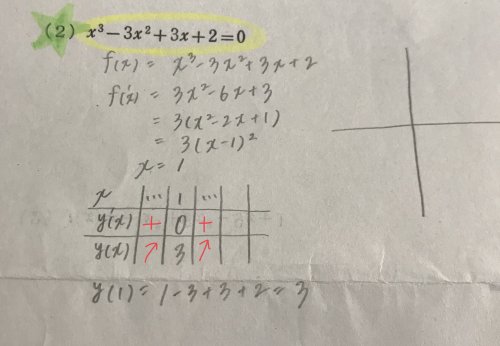 (2) x³−3x²+3x+2=0
f(x) = x³-3x²+3x+2
f'(x) = 3x²-6x+3
= 3(x²-2x+1)
= 3(x-1)²
x = 1
x | … | 1 | …
y'(x) | + | 0 | +
y(x) | ↗ | 3 | ↗
y(1) = 1-3+3+2 = 3